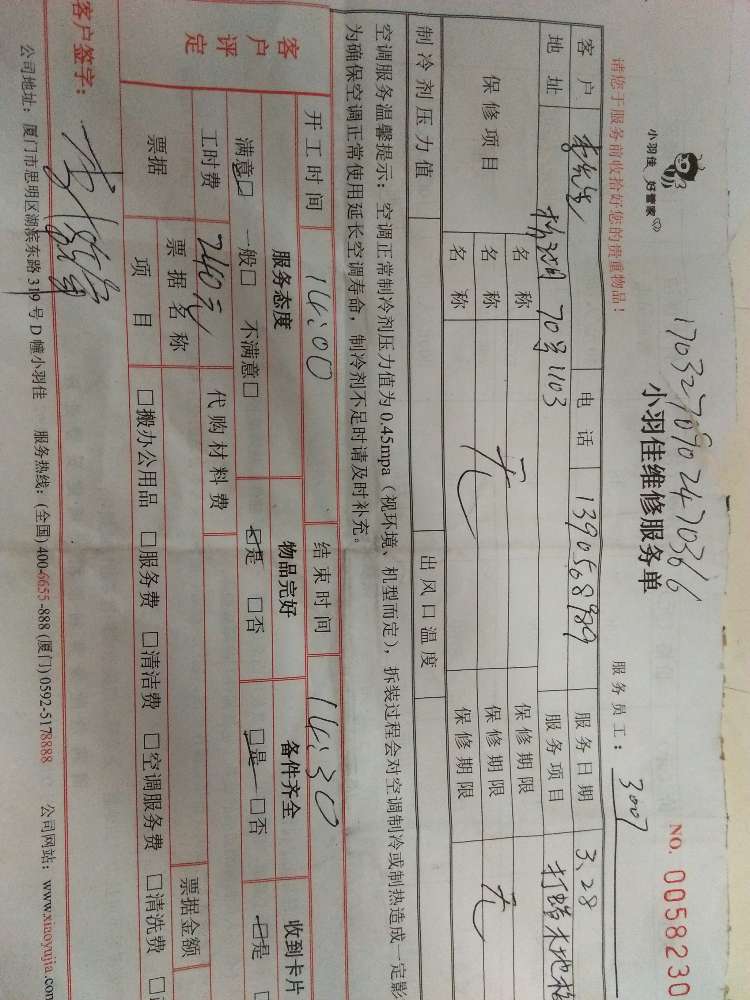 小羽佳 好管家
17032709024703616
小羽佳维修服务单
NO. 0058230
请您于服务前收拾好您的贵重物品！
服务员工： 3007
客户 李先生 电话 服务日期 3.28
地址 70号1103 服务项目 打蜡木地板
保修项目 名称 无 保修期限 无
名称 保修期限
名称 保修期限
制冷剂压力值 出风口温度
空调服务温馨提示：空调正常制冷剂压力值为0.45mpa（视环境、机型而定），拆装过程会对空调制冷或制热造成一定影
为确保空调正常使用延长空调寿命，制冷剂不足时请及时补充。
开工时间 14:00 结束时间 14:30
客户评定 服务态度 物品完好 备件齐全 收到卡片
满意□ 一般□ 不满意□ □是 □否 □是 □否 □是
工时费 240元 代购材料费
票据 票据名称 票据金额
项目 □搬办公用品 □服务费 □清洁费 □空调服务费 □清洗费
客户签字：
公司地址：厦门市思明区湖滨东路319号D幢小羽佳 服务热线：(全国) 400-6655-888 (厦门) 0592-5178888 公司网站：www.xiaoyujia.com